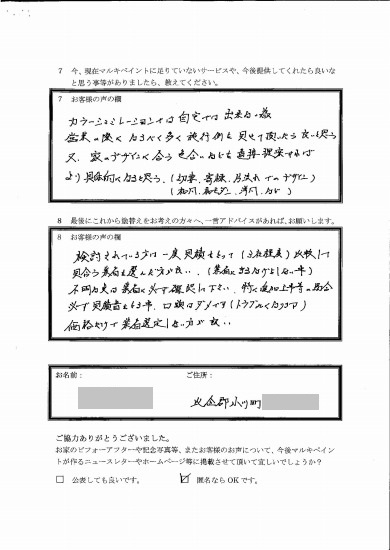 7 今、現在マルキペイントに足りていないサービスや、今後提供してくれたら良いな
と思う事等がありましたら、教えてください。
7 お客様の声の欄
カラーシュミレーションでは自宅では出来ない為
営業の際、なるべく多く施行例を見せて頂いたら良いと思う
又、家のデザインに合う色合いなども直接提案すれば
より具体的になると思う。
8 最後にこれから塗替えをお考えの方々へ、一言アドバイスがあれば、お願いします。
8 お客様の声の欄
検討されている方は一度見積をとって(3社程度)比較して
見合う業者を選んだ方が良い。
不明な点は業者に必ず確認して下さい。特に追加工事等の場合
必ず見積書をもらう事。口頭はダメです(トラブルになります)
価格だけで業者選定しない方が良い
お名前:
ご住所:
比企郡小川町
ご協力ありがとうございました。
お家のビフォーアフターや記念写真等、またお客様のお声について、今後マルキペイン
トが作るニュースレターやホームページ等に掲載させて頂いて宜しいでしょうか?
□ 公表しても良いです。 ☑ 匿名ならOKです。